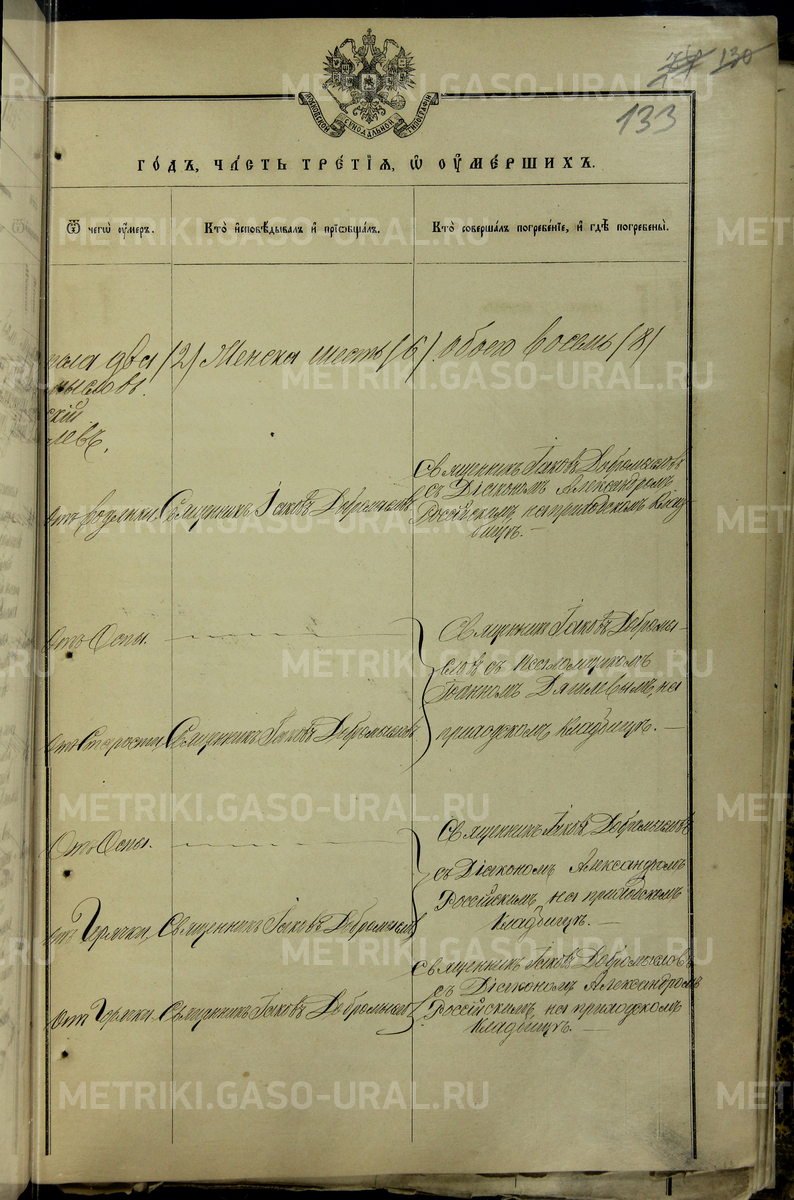 130
133
МОСКОВСКОЙ СѴНОДАЛЬНОЙ ТИПОГРАФІИ
ГО́ДЪ, ЧА́СТЬ ТРЕ́ТІѦ, Ѡ ОУ҆МЕ́РШИХЪ.
Ѿ чегѡ̀ оу҆́меръ.
Кто̀ и҆сповѣ́дывалъ и҆ прїѡбща́лъ.
Кто̀ соверша́лъ погребе́нїе, и҆ гдѣ̀ погребены̀.
пола два /2/ Женска шесть /6/ обоего восемь /8/
мысловъ.
скій
левъ.
отъ водянки.
Священникъ Іаковъ Добромысловъ
Священникъ Іаковъ Добромысловъ
съ Діакономъ Александромъ
Россійскимъ на приходскомъ Клад
бищѣ. —
отъ Оспы.
Священникъ Іаковъ Добромы-
словъ съ Псаломщикомъ
Іоанномъ Дягилевымъ, на
приходскомъ Кладбищѣ. —
отъ Старости
Священникъ Іаковъ Добромысловъ
Отъ Оспы.
Священникъ Іаковъ Добромысловъ
съ Діакономъ Александромъ
Россійскимъ на приходскомъ
Кладбищѣ. —
отъ Горячки,
Священникъ Іаковъ Добромысловъ
отъ Горячки.
Священникъ Іаковъ Добромысловъ
Священникъ Іаковъ Добромысловъ
съ Діакономъ Александромъ
Россійскимъ на приходскомъ
Кладбищѣ. —
METRIKI.GASO-URAL.RU